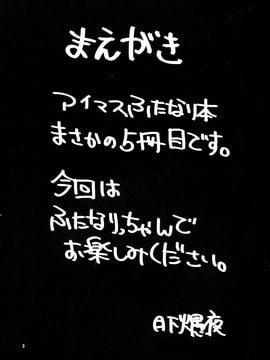 まえがき
アイマスふたなり本
まさかの5冊目です。
今回は
ふたなりっちゃんで
お楽しみください。
3